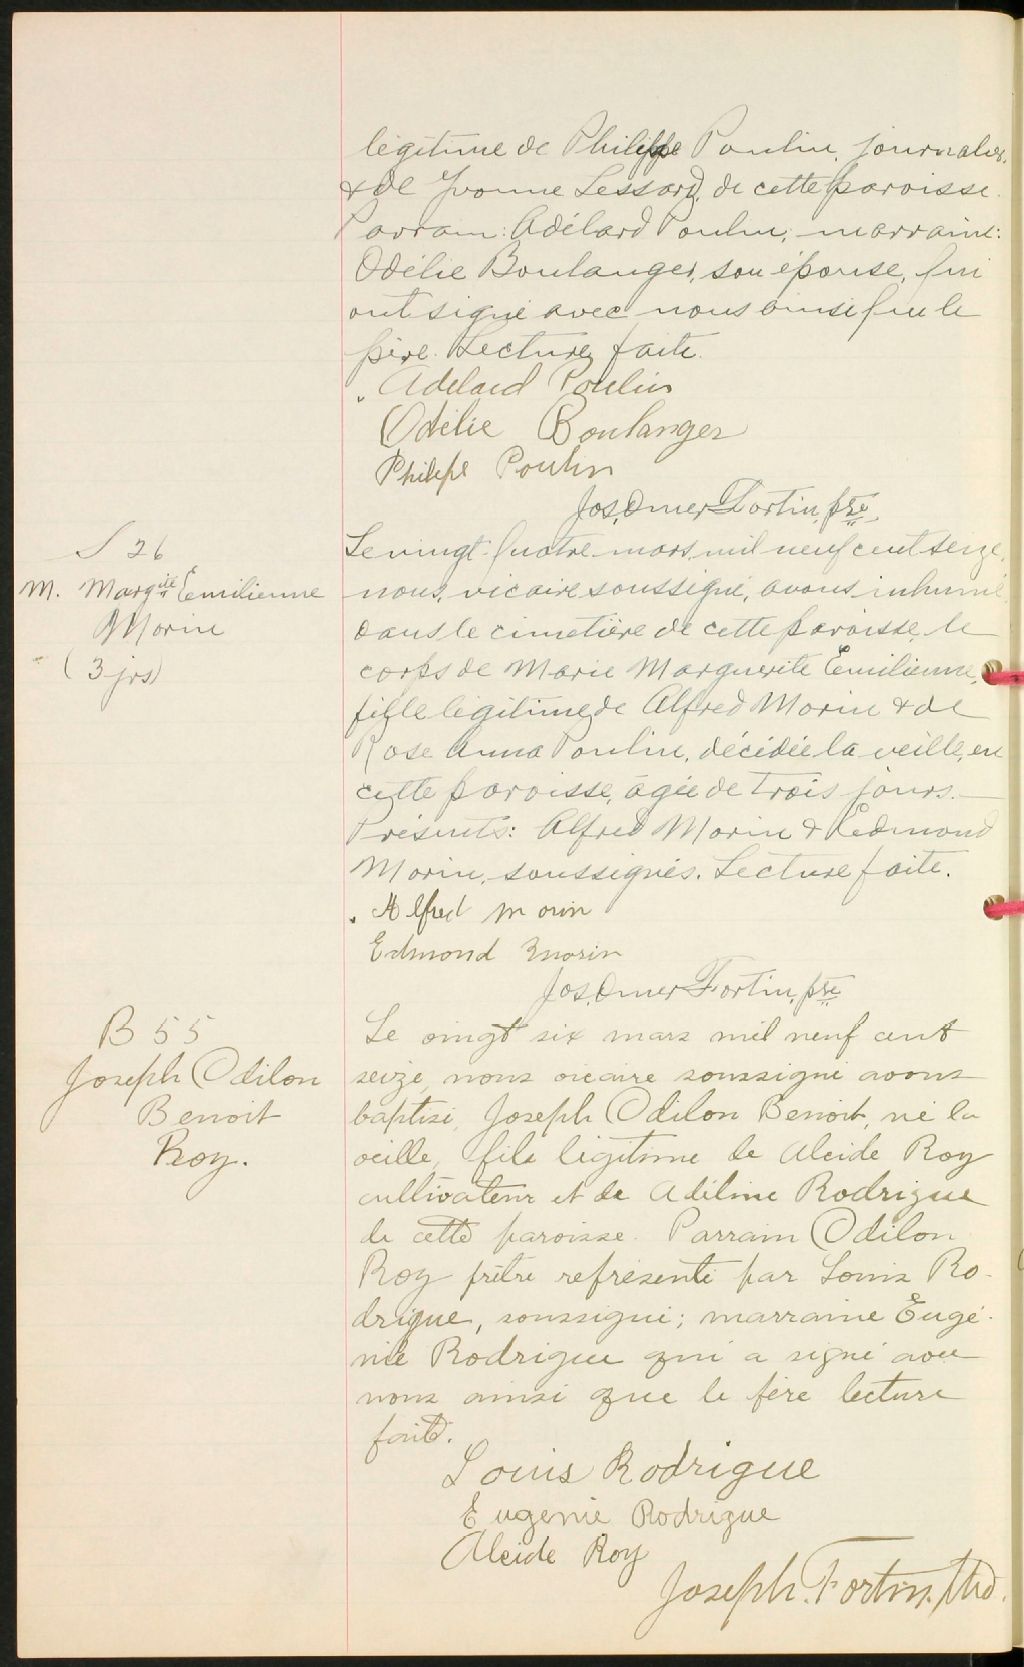 légitime de Philippe Poulin, journalier,
& de Yvonne Lessard, de cette paroisse.
Parrain: Adélard Poulin; marraine:
Odélie Boulanger, son épouse, qui
ont signé avec nous ainsi que le
père. Lecture faite.
Adelard Poulin
Odélie Boulanger
Philipe Poulin
Jos. Omer Fortin, ptre
S 26
M. Margte Emilienne
Morin
(3 jrs)
Le vingt-quatre mars mil neuf cent seize,
nous, vicaire soussigné, avons inhumé
dans le cimetière de cette paroisse, le
corps de Marie Marguerite Emilienne,
fille légitime de Alfred Morin & de
Rose Anna Poulin, décédée la veille, en
cette paroisse, âgée de trois jours.
Présents: Alfred Morin & Edmond
Morin, soussignés. Lecture faite.
Alfred Morin
Edmond Morin
Jos. Omer Fortin, ptre
B 55
Joseph Odilon
Benoit
Roy.
Le vingt six mars mil neuf cent
seize, nous vicaire soussigné avons
baptisé, Joseph Odilon Benoit, né la
veille, fils légitime de Alcide Roy
cultivateur et de Adéline Rodrigue
de cette paroisse. Parrain Odilon
Roy prêtre représenté par Louis Ro-
drigue, soussigné; marraine Eugé-
nie Rodrigue qui a signé avec
nous ainsi que le père lecture
faite.
Louis Rodrigue
Eugenie Rodrigue
Alcide Roy
Joseph. Fortin.